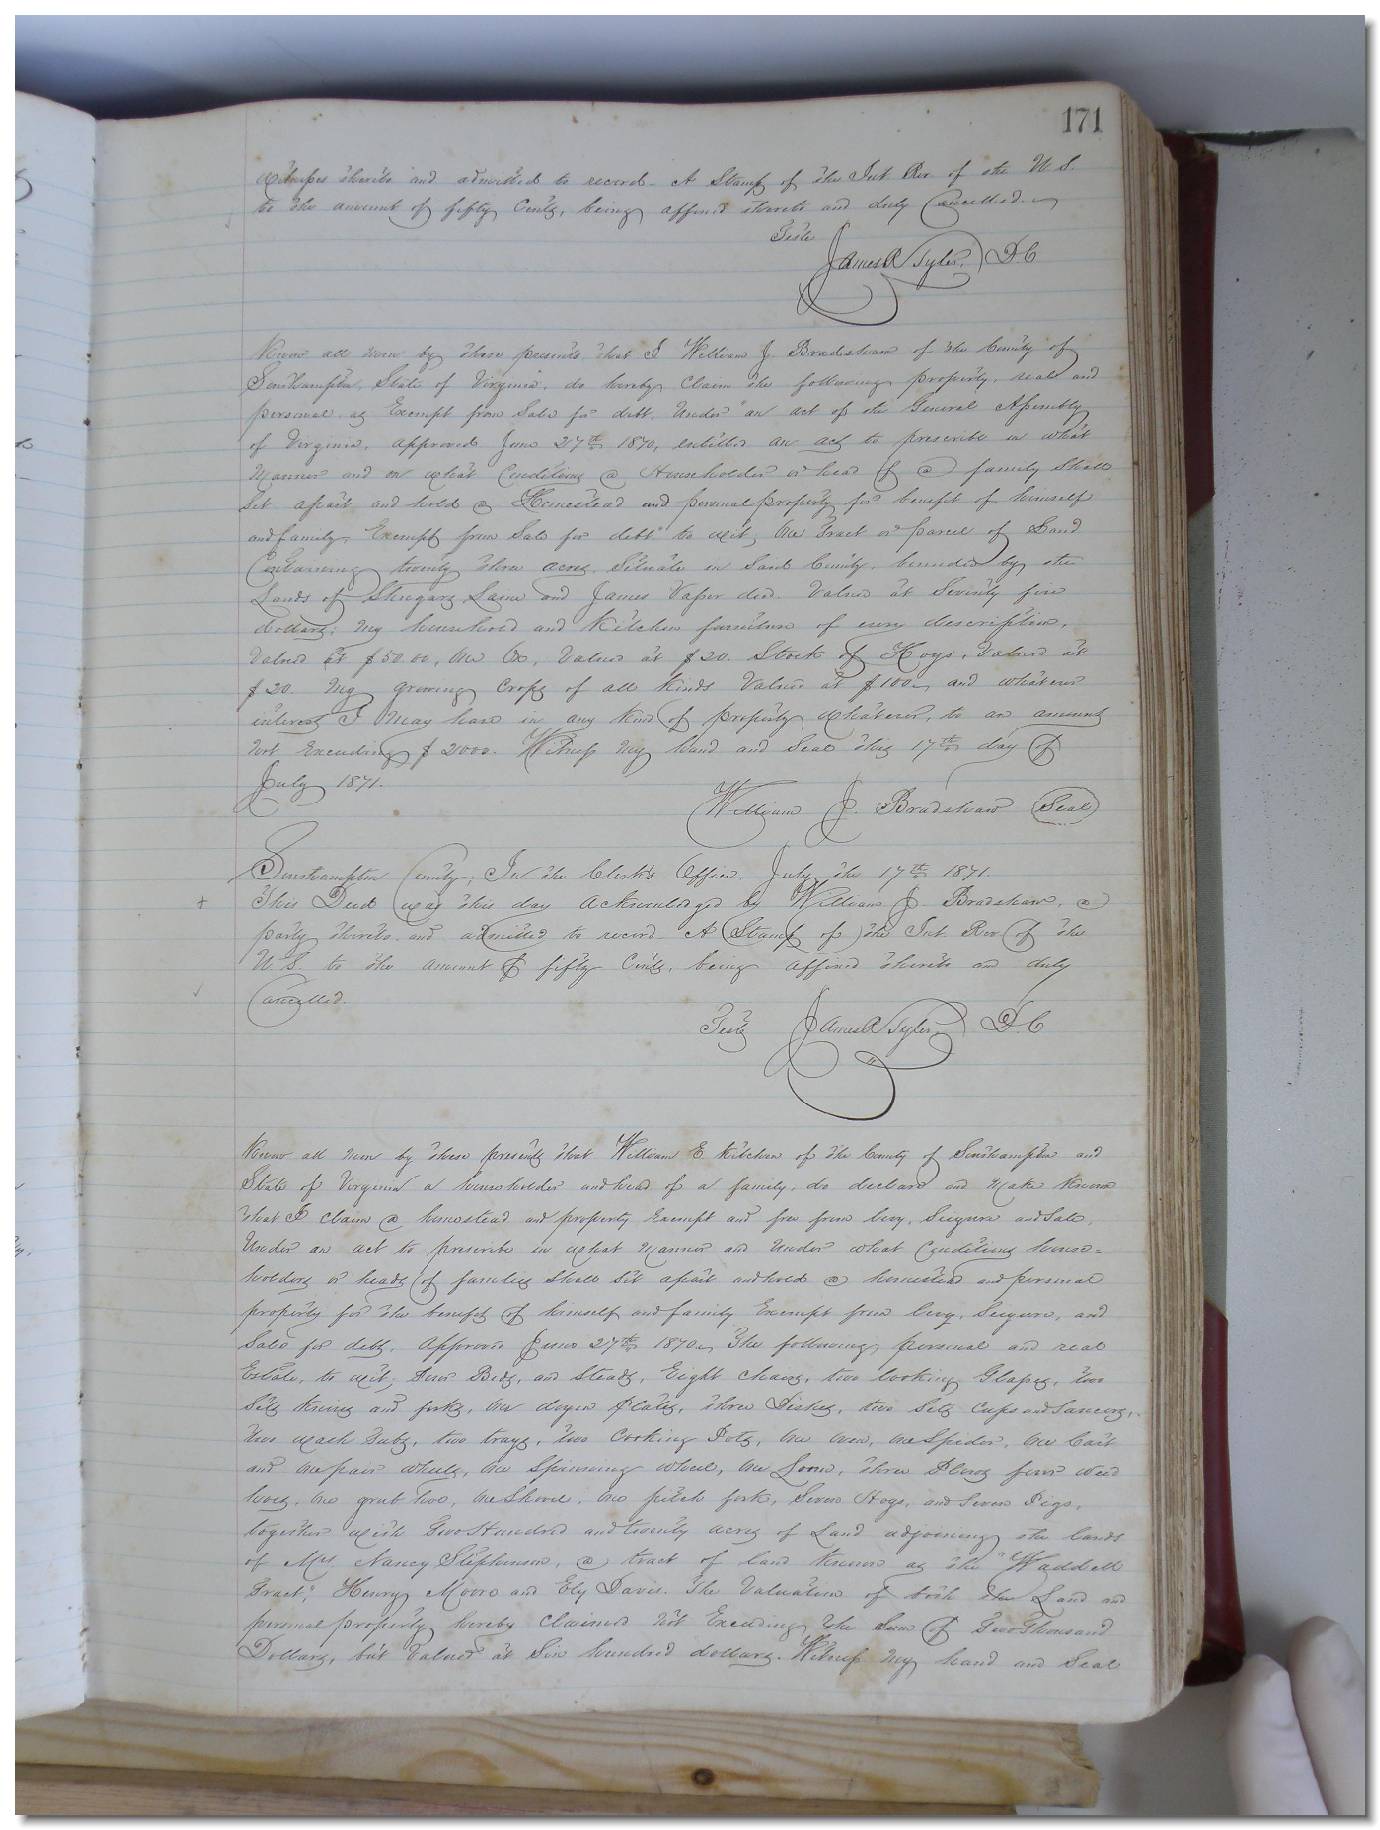 171
witnesses thereto and admitted to record. A Stamp of the Int Rev of the U. S.
to the amount of fifty Cents, being affixed thereto and duly Cancelled.
Teste
James R Tyler, D. C
Know all men by these presents that I William J. Bradshaw of the County of
Southampton, State of Virginia, do hereby Claim the following property, real and
personal as Exempt from Sale for debt, Under "an act of the General Assembly
of Virginia, approved June 27th 1870, entitled an act to prescribe in what
Manner and on what Conditions a Householder or head of a family Shall
Set apart and hold a Homestead and personal property for benefit of himself
and family, Exempt from Sale for debt" to wit; One Tract or parcel of Land
Containing twenty three acres. Situate in Said County, bounded by the
Lands of Lane and James Vaper decd. Valued at Seventy five
dollars; My household and Kitchen furniture of every description,
Valued at $50.00, One Ox, Valued at $20. Stock of Hogs, Valued at
$20. My growing Crops of all Kinds Valued at $100. and whatever
interest I May have in any Kind of property whatever, to an amount
Not Exceeding $2000. Witness My hand and Seal this 17th day of
July 1871.
William J. Bradshaw Seal
Southampton County; In the Clerk's Office. July the 17th 1871.
+ This Deed was this day acknowledged by William J. Bradshaw, a
party thereto and admitted to record. A Stamp of the Int. Rev of the
U. S. to the amount of fifty Cents, being affixed thereto and duly
Cancelled.
Teste James R Tyler D. C
Know all Men by these presents that William E Kitchen of the County of Southampton and
State of Virginia a householder and head of a family, do declare and Make Known
that I claim a homestead and property Exempt and free from levy, Seizure and Sale,
Under an act to prescribe in what Manner and Under what Conditions house=
holders or heads of families Shall Set apart and hold a homestead and personal
property for the benefit of himself and family Exempt from levy, Seizure, and
Sale for debt. Approved June 27th 1870. The following personal and real
Estate, to wit; Four Beds, and Steads, Eight chairs, two looking Glasses, two
Sets Knives and forks, One dozen plates, three Dishes, two Sets Cups and Saucers,
two wash Tubs, two trays, two Cooking Pots, One Oven, One Spider, One Cart
and One pair wheels, One Spinning wheel, One Loom, three Plows four weed
hoes, One grub hoe, One Shovel, One pitch fork, Seven Hogs, and Seven Pigs,
together with Two Hundred and twenty acres of Land adjoining the lands
of Mrs. Nancy Stephenson, a tract of land Known as the "Waddell
Tract," Henry Moore and Ely Davis. The Valuation of both the Land and
personal property hereby claimed Not Exceeding the Sum of Two Thousand
Dollars, but Valued at Six hundred dollars. Witness My hand and Seal